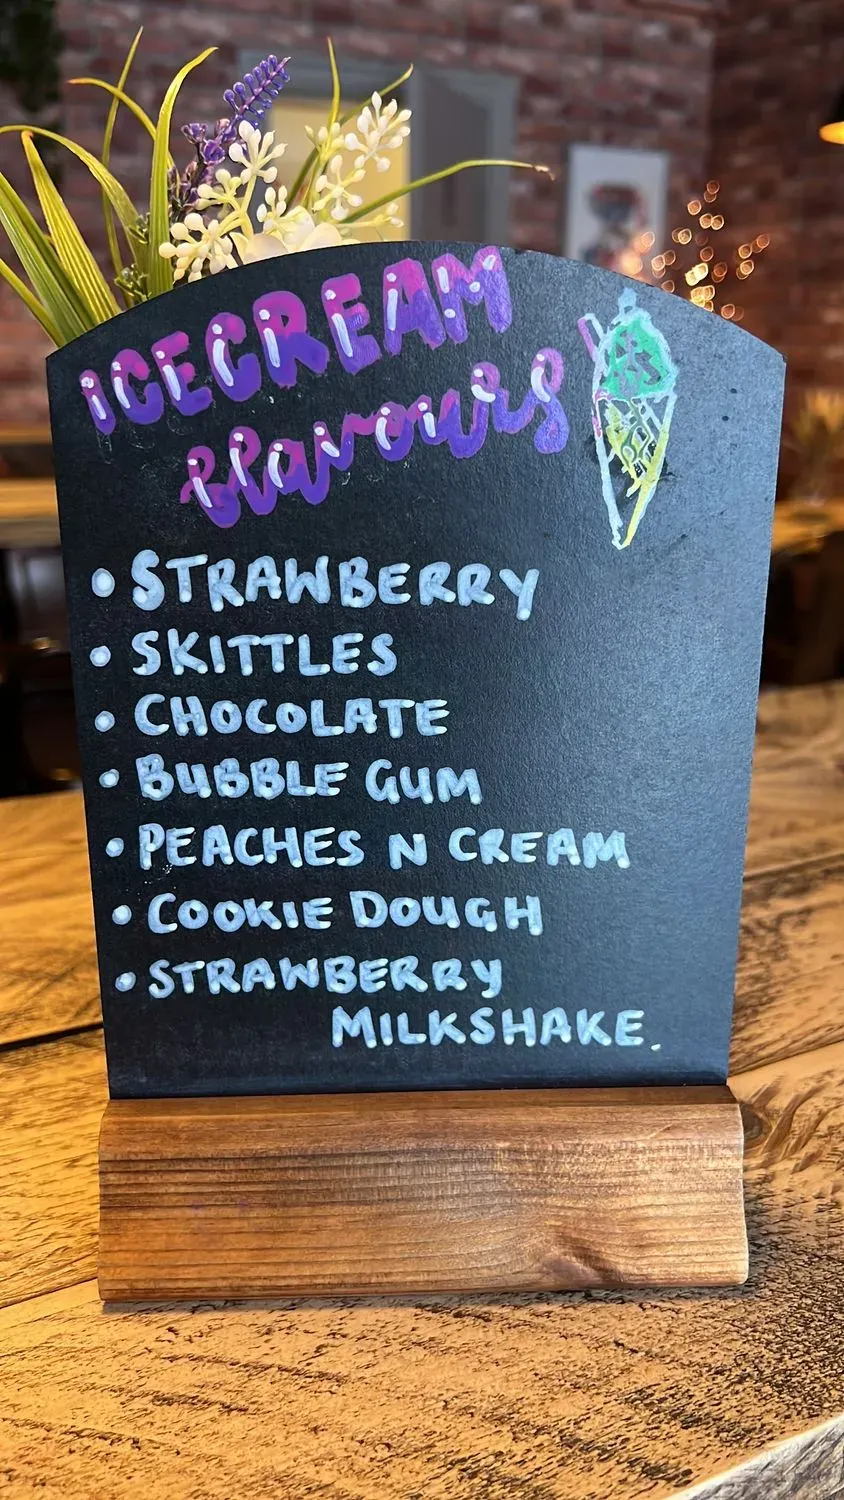 ICECREAM
flavours
• STRAWBERRY
• SKITTLES
• CHOCOLATE
• BUBBLE GUM
• PEACHES N CREAM
• COOKIE DOUGH
• STRAWBERRY
MILKSHAKE.